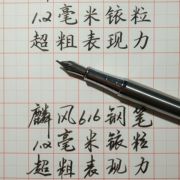 1.2毫米铱粒
超粗表现力
麟风616钢笔
1.2毫米铱粒
超粗表现力